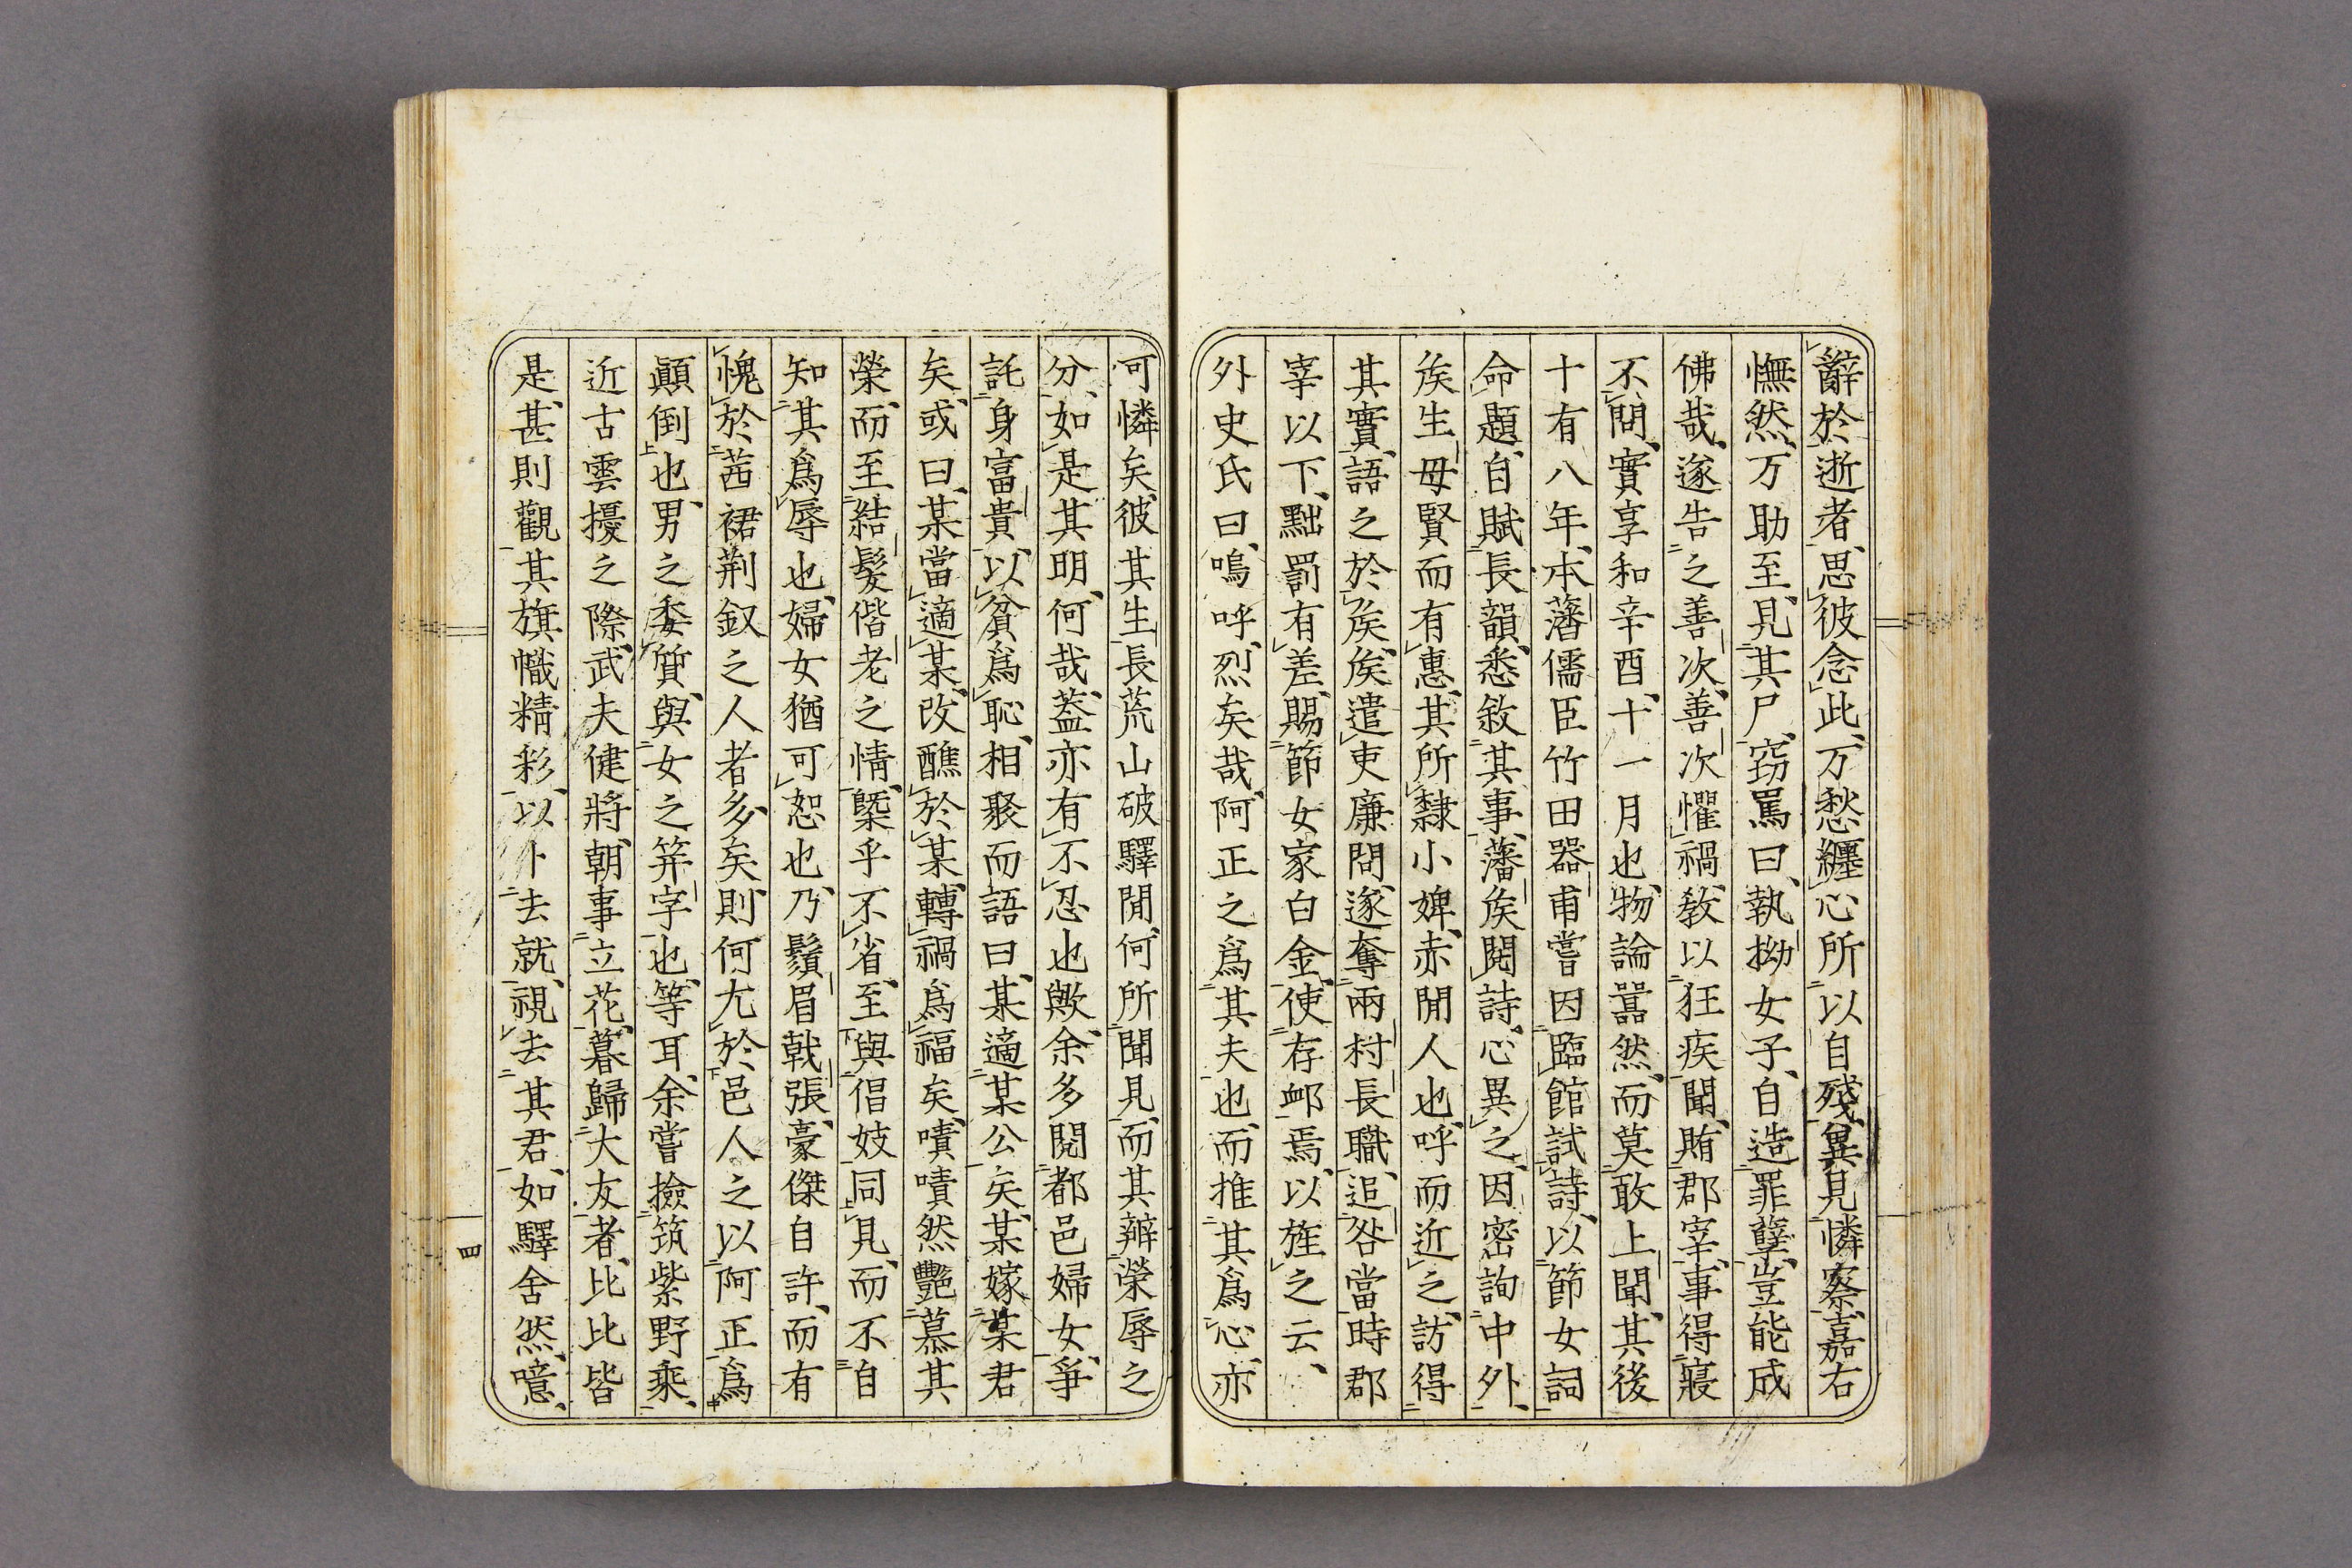 辭於逝者、思彼念此、万愁纏心所以自殘、異見憐察、嘉右
憮然、万助至、見其尸、窈罵曰、執拗女子、自造罪孽、豈能成
佛哉、遂告之善次、善次懼禍、教以狂疾聞、賄郡宰、事得寢
不問、實享和辛酉十一月也、物論囂然、而莫敢上聞、其後
十有八年、本藩儒臣竹田器甫嘗因臨館試詩、以節女詞
命題、自賦長韻、悉敘其事、藩矦閱詩、心異之、因密詢中外、
矦生母賢而有惠、其所隸小婢、赤閒人也、呼而近之、訪得
其實、語之於矦、矦遣吏廉問、遂奪兩村長職、追咎當時郡
宰以下、黜罰有差、賜節女家白金、使存衈焉、以旌之云、
外史氏曰、嗚呼、烈矣哉、阿正之爲其夫也、而推其爲心、亦
可憐矣、彼其生長荒山破驛閒、何所聞見、而其辨榮辱之
分、如是其明、何哉、蓋亦有不忍也歟、余多閱都邑婦女、爭
託身富貴、以貧爲恥、相聚而語曰、某適某公矣、某嫁某君
矣、或曰、某當適某、改醮於某、轉禍爲福矣、嘖嘖然艷慕其
榮、而至結髮偕老之情、槩乎不省、至與倡妓同見、而不自
知其爲辱也、婦女猶可恕也、乃鬚眉戟張、豪傑自許、而有
愧於茜裙荊釵之人者多矣、則何尤於邑人之以阿正爲
顚倒也、男之委質、與女之筓字也、等耳、余嘗撿筑紫野乘、
近古雲擾之際、武夫健將、朝事立花、暮歸大友者、比比皆
是、甚則觀其旗幟精彩、以卜去就、視去其君、如驛舍然、噫、
四